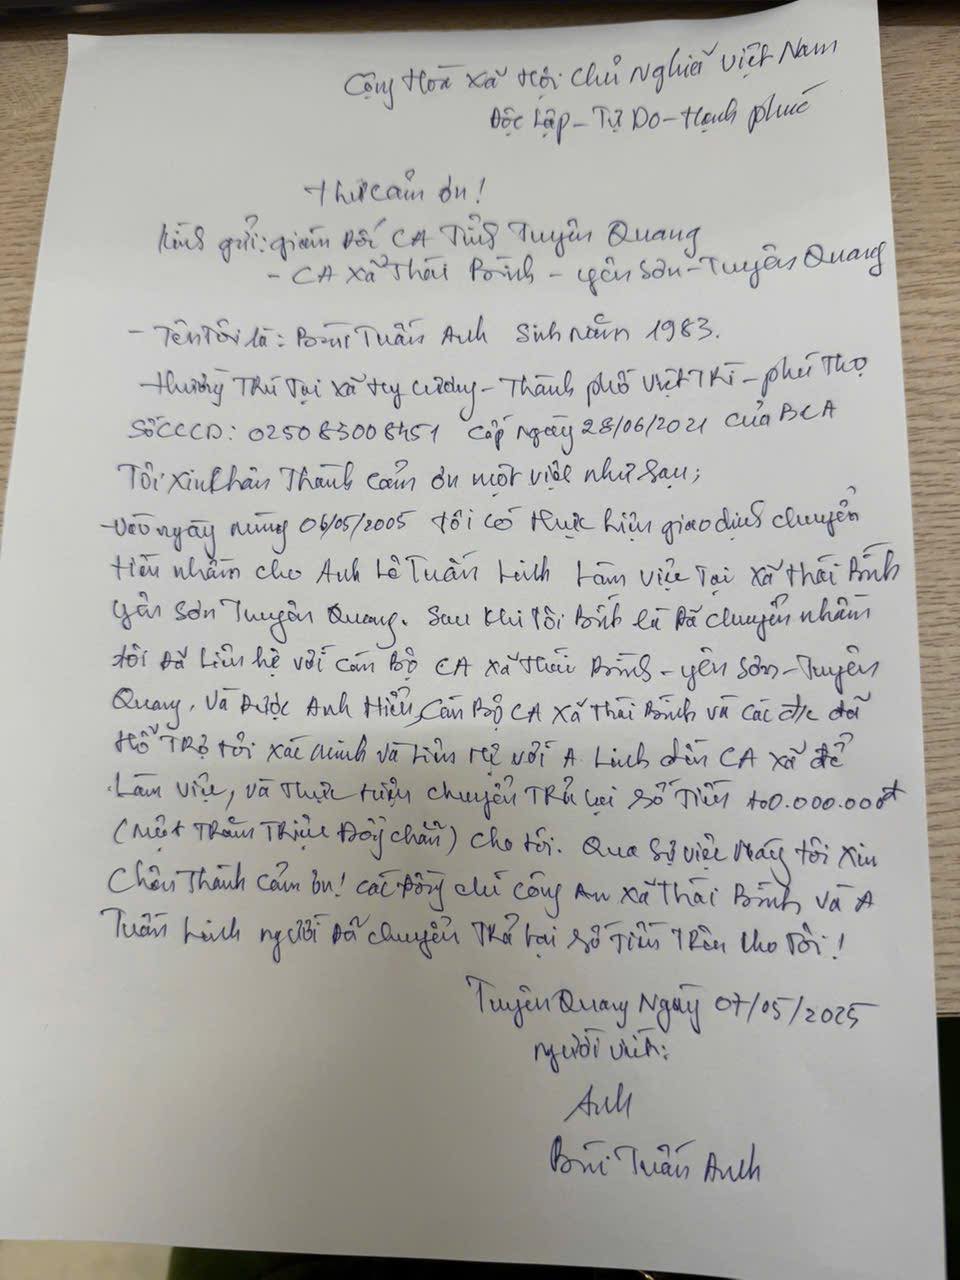 Cộng Hoà Xã Hội Chủ Nghĩa Việt Nam
Độc Lập - Tự Do - Hạnh phúc
thư cảm ơn!
Kính gửi: giám Đốc CA Tỉnh Tuyên Quang
- CA xã Thái Bình - Yên Sơn - Tuyên Quang
- Tên Tôi là: Bùi Tuấn Anh Sinh Năm 1983.
Thường Trú Tại xã Hy Cương - Thành phố Việt Trì - phú Thọ
Số CCCD: 025083008451 Cấp ngày 28/06/2021 của BCA
Tôi xin chân Thành cảm ơn một việc như sau;
- vào ngày mùng 06/05/2005 tôi có thực hiện giao dịch chuyển
tiền nhầm cho Anh Lê Tuấn Linh Làm việc Tại xã Thái Bình
Yên Sơn Tuyên Quang. Sau khi tôi Biết là Đã chuyển nhầm
tôi Đã Liên hệ với cán Bộ CA xã Thái Bình - yên Sơn - Tuyên
Quang, và Được Anh Hiển, Cán Bộ CA xã Thái Bình và các đ/c đã
Hỗ Trợ tôi xác minh và Liên Hệ với A. Linh đến CA xã để
Làm việc, và Thực hiện chuyển Trả Lại Số Tiền 100.000.000đ
(Một Trăm Triệu Đồng chẵn) cho tôi. Qua Sự việc này tôi xin
Chân Thành cảm ơn! các Đồng chí công An xã Thái Bình và A
Tuấn Linh người Đã chuyển Trả Lại Số Tiền Trên cho Tôi!
Tuyên Quang Ngày 07/05/2025
người viết:
Anh
Bùi Tuấn Anh